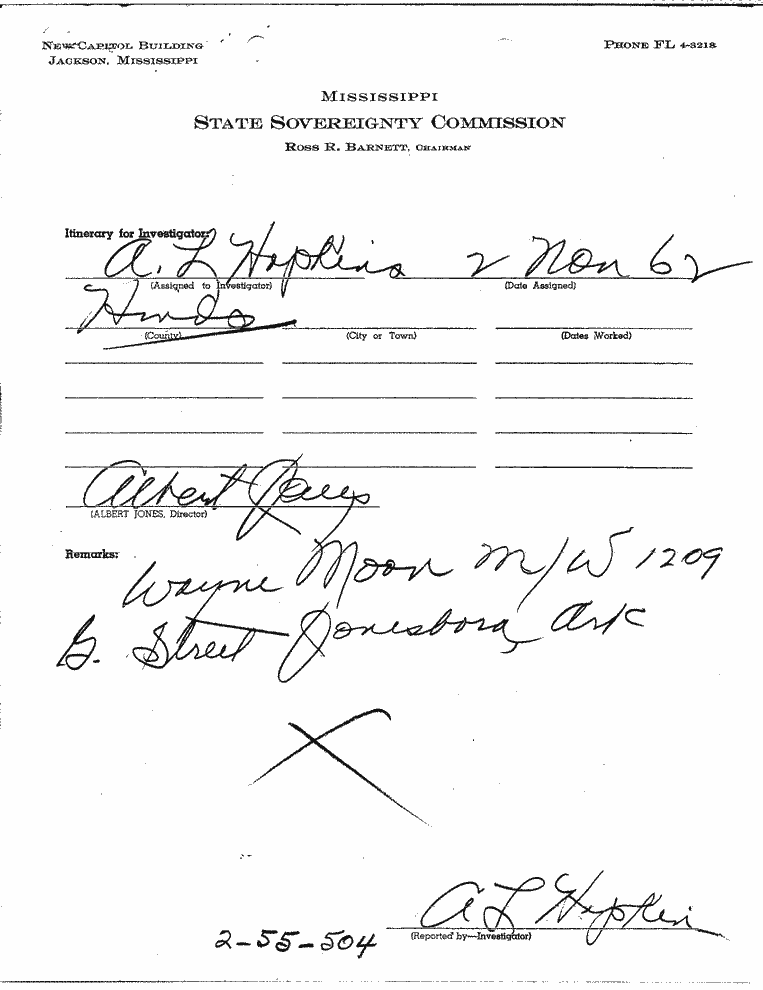 NEW CAPITOL BUILDING
JACKSON, MISSISSIPPI
PHONE FL 4-3218
MISSISSIPPI
STATE SOVEREIGNTY COMMISSION
ROSS R. BARNETT, CHAIRMAN
Itinerary for Investigator:
A. L Hopkins 2 Nov 62
(Assigned to Investigator) (Date Assigned)
Hinds
(County) (City or Town) (Dates Worked)
Albert Jones
(ALBERT JONES, Director)
Remarks:
Wayne Moon M/W 1209
G. Street Jonesboro, Ark
X
A L Hopkins
(Reported by—Investigator)
2-55-504